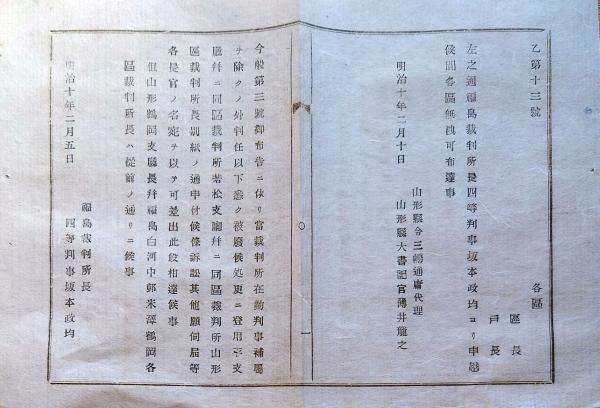 乙第十三號
各區
區長
戸長
左之通福島裁判所長四等判事坂本政均ヨリ申越
候間各區無洩可布達事
山形縣令三島通庸代理
明治十年二月十日 山形縣大書記官薄井龍之
今般第三號御布告ニ依リ當裁判所在勤判事補屬
ヲ除クノ外判任以下悉ク被廢候処更ニ登用シ支
廳幷ニ同區裁判所若松支廳幷ニ同區裁判所山形
區裁判所長別紙ノ通申付候條訴訟其他願伺届等
各長官ノ名宛ヲ以テ可差出此段相達候事
但山形鶴岡支廳長幷福島白河中郵米澤鶴岡各
區裁判所長ハ從前ノ通リニ候事
明治十年二月五日
福島裁判所長
四等判事坂本政均